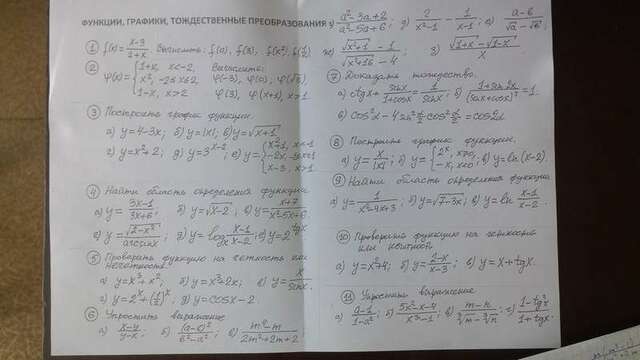 ФУНКЦИИ, ГРАФИКИ, ТОЖДЕСТВЕННЫЕ ПРЕОБРАЗОВАНИЯ
① f(x)=(x-3)/(1+x) Вычислить: f(0), f(3), f(x²), f(1/2)
② φ(x)={1+x, x<-2, Вычислить:
x², -2≤x≤2 φ(-3), φ(0), φ(√3)
1-x, x>2 φ(3), φ(x+1), x>1
③ Построить график функции
а) y=4-3x; б) y=|x|; в) y=√(x+1)
г) y=x²+2; д) y=3^(x-2)
④ Найти область определения функции
а) y=(3x-1)/(3x+6); б) y=√(x-2); в) y=(x+7)/(x²-5x+6)
г) y=√(2-x²)/arcsinx; д) y=log (x-1)/(x-2); е) y=2^(tgx)
⑤ Проверить функцию на четность или
нечетность.
а) y=x⁴+x²; б) y=x³+2x; в) y=x/sinx
г) y=2^x+(1/2)^x; д) y=cosx-2
⑥ Упростить выражение
а) (x-y)/(y-x); б) (a-b)²/(b²-a²); в) (m²-m)/(2m²+2m+2)
г) (a²-3a+2)/(a²-5a+6); д) 2/(x²-1) - 1/(x-1); е) (a-b)/(√a-√b);
ж) (√(x²+1)-1)/(√(x²+16)-4) з) (√(1+x)-√(1-x))/x
⑦ Доказать тождество.
а) ctgx+sinx/(1+cosx)=1/sinx; б) (1+sin2x)/(sinx+cosx)²=1.
в) cos²α-4sin²α/2 cos²α/2=cos2α
⑧ Построить график функции.
а) y=x/|x|; б) y={2^x, x>0, -x, x<0; в) y=ln(x-2).
⑨ Найти область определения функции
а) y=1/(x²-4x+3); б) y=√(7-3x); в) y=ln (x-1)/(x-2).
⑩ Проверить функцию на четность
или нечетной
а) y=x²+4; б) y=(2-x)/(x-3); в) y=x+tgx
⑪ Упростить выражение
а) (a-1)/(1-a²); б) (5x²-x-4)/(x³-1); в) (m-n)/(∛m-∛n); г) (1-tg²x)/(1+tgx).